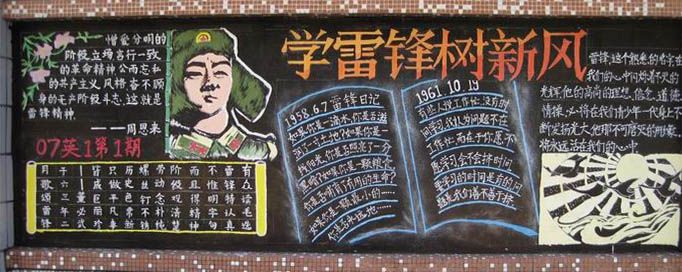 憎爱分明的
阶级立场言行一致
的革命精神公而忘私
的共产主义风格奋不顾
身的无产阶级斗志,这就是
雷锋精神
——周恩来
07英1第1期
学雷锋树新风
1958 6.7 雷锋日记
如果你是一滴水,你是否滋
润了一寸土地?如果你是一
线阳光,你是否照亮了一分
黑暗?如果你是一颗粮食
你是否哺育了有用的生命?
如果你是一颗最小的……
你是否永远地……
1961 10.19
有些人说工作忙,没有时
间学习我认为问题不在
工作忙,而在于你愿不
愿意学习会不会挤时间
要学习的时间是有的问
题是我们善不善于挤
雷锋,这个熟悉的名字在
我们的心中闪烁着不灭的
光辉他的高尚的理想、信念、道德
情操,必将在我们青少年一代身上不
断发扬光大他那不可磨灭的形象,
将永远活在我们的心中